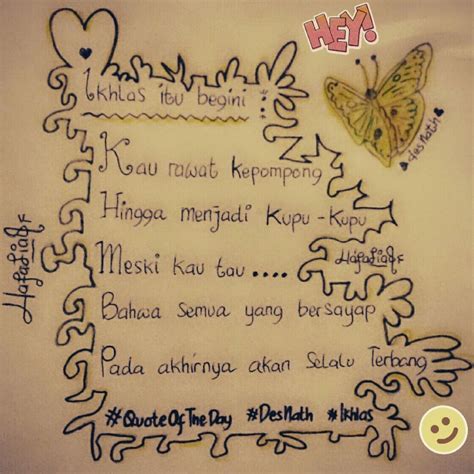 HEY!
Ikhlas itu begini :
desMath
Kau rawat kepompong
Hingga menjadi Kupu-Kupu
Meski kau tau ....
Bahwa Semua yang bersayap
Pada akhirnya akan Selalu Terbang
#QuoteOfTheDay #DesMath #Ikhlas